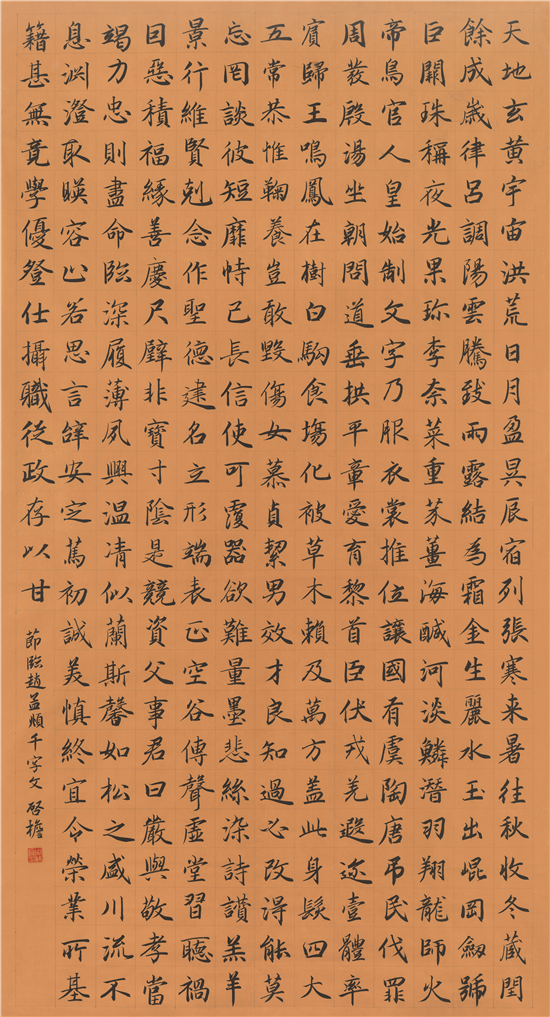 天地玄黃宇宙洪荒日月盈昃辰宿列張寒来暑往秋收冬蔵閏
餘成歲律呂調陽雲騰致雨露結為霜金生麗水玉出崐岡劔號
巨闕珠稱夜光果珍李柰菜重芥薑海鹹河淡鱗潛羽翔龍師火
帝鳥官人皇始制文字乃服衣裳推位讓國有虞陶唐吊民伐罪
周發殷湯坐朝問道垂拱平章愛育黎首臣伏戎羌遐迩壹體率
賓歸王鳴鳳在樹白駒食場化被草木賴及萬方盖此身髮四大
五常恭惟鞠養豈敢毀傷女慕貞絜男效才良知過必改得能莫
忘罔談彼短靡恃己長信使可覆器欲難量墨悲絲染詩讚羔羊
景行維賢剋念作聖德建名立形端表正空谷傳聲虛堂習聽禍
因惡積福緣善慶尺璧非寶寸陰是競資父事君曰嚴與敬孝當
竭力忠則盡命臨深履薄夙興温凊似蘭斯馨如松之盛川流不
息淵澄取暎容止若思言辭安定篤初誠美慎終宜令榮業所基
籍甚無竟學優登仕攝職從政存以甘
節臨趙孟頫千字文 啓